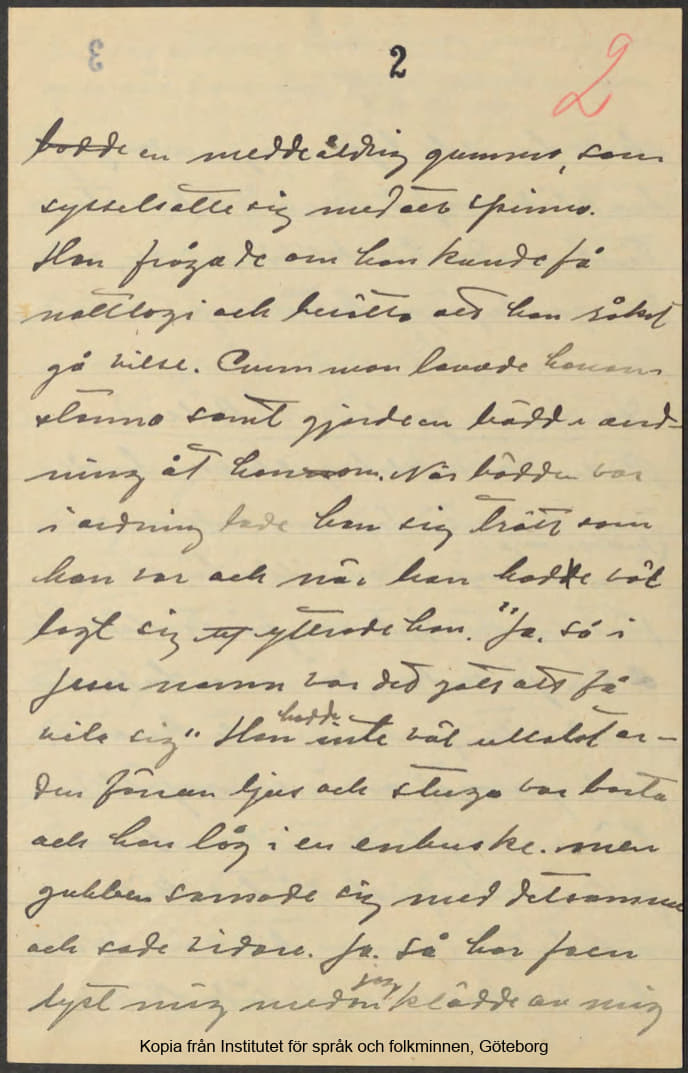 3
2
2
bodde en meddeåldrig gumma, som
sysselsatte sig med att spinna.
Han frågade om han kunde få
nattlogi och berätta att han råkat
gå vilse. Gumman lovade honom
stanna samt gjorde en bädd i ord-
ning åt honom. När bädden var
i ordning lade han sig trött som
han var och när han hadde väl
lagt sig yttrade han. "Ja, så i
Jesu namn var det gått att få
vila sig" Han hadde inte väl uttalat or-
den förran ljus och stuga var borta
och han låg i en enbuske. men
gubben sansade sig med detsamma
och sade vidare. Ja. så har faen
lyst mig medan jag klädde av mig
Kopia från Institutet för språk och folkminnen, Göteborg